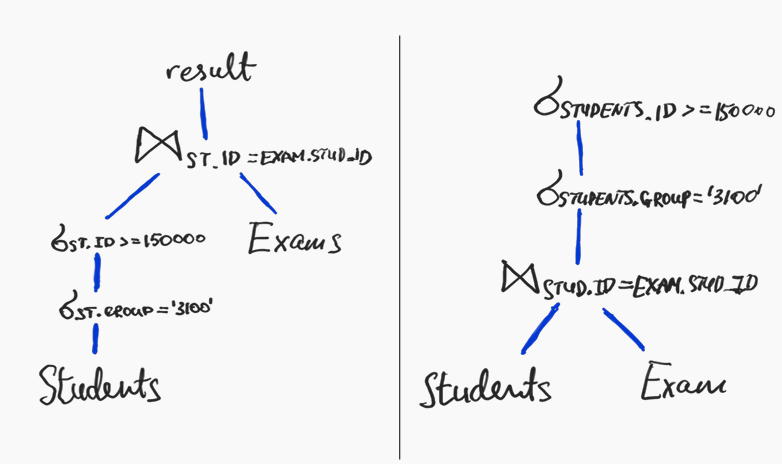 result
⋈ ST.ID = EXAM.STUD_ID
σ ST.ID >= 150000
Exams
σ ST.GROUP = '3100'
Students
σ STUDENTS.ID >= 150000
σ STUDENTS.GROUP = '3100'
⋈ STUD.ID = EXAM.STUD_ID
Students
Exam